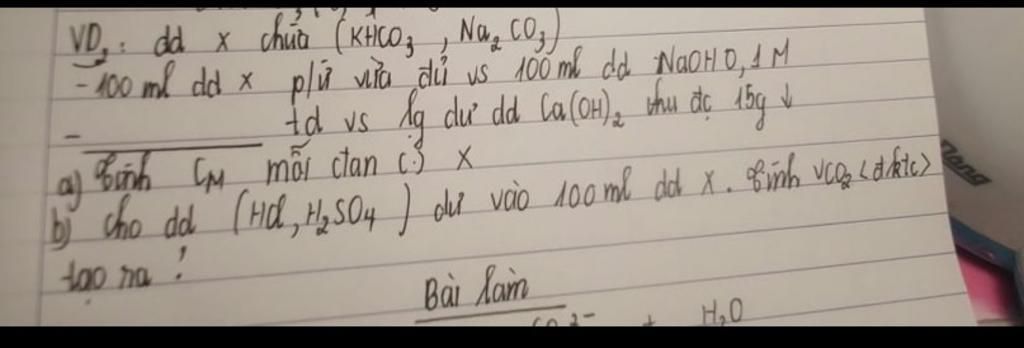 VD₃: dd x chứa (KHCO₃, Na₂CO₃)
- 100 ml dd x p/ứ vừa đủ vs 100 ml dd NaOH 0,1M
- ——— td vs lg dư dd Ca(OH)₂ thu đc 15g ↓
a) Tính CM mỗi ctan (.) x
b) Cho dd (HCl, H₂SO₄) dư vào 100 ml dd x. Tính VCO₂ <đktc>
tạo ra !
Bài làm
CO₃²⁻ + H₂O